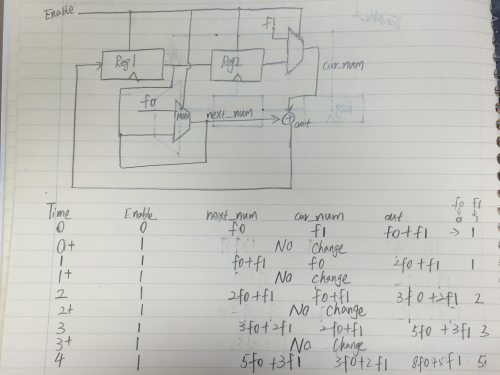 Enable
f1
Reg1
Reg2
cur_num
f0
mux
next_num
out
f0 f1
Time Enable next_num cur_num out 0 1
0 0 f0 f1 f0+f1 → 1
0+ 1 No change
1 1 f0+f1 f0 2f0+f1 1
1+ 1 No change
2 1 2f0+f1 f0+f1 3f0+2f1 2
2+ 1 No change
3 1 3f0+2f1 2f0+f1 5f0+3f1 3
3+ 1 No change
4 1 5f0+3f1 3f0+2f1 8f0+5f1 5